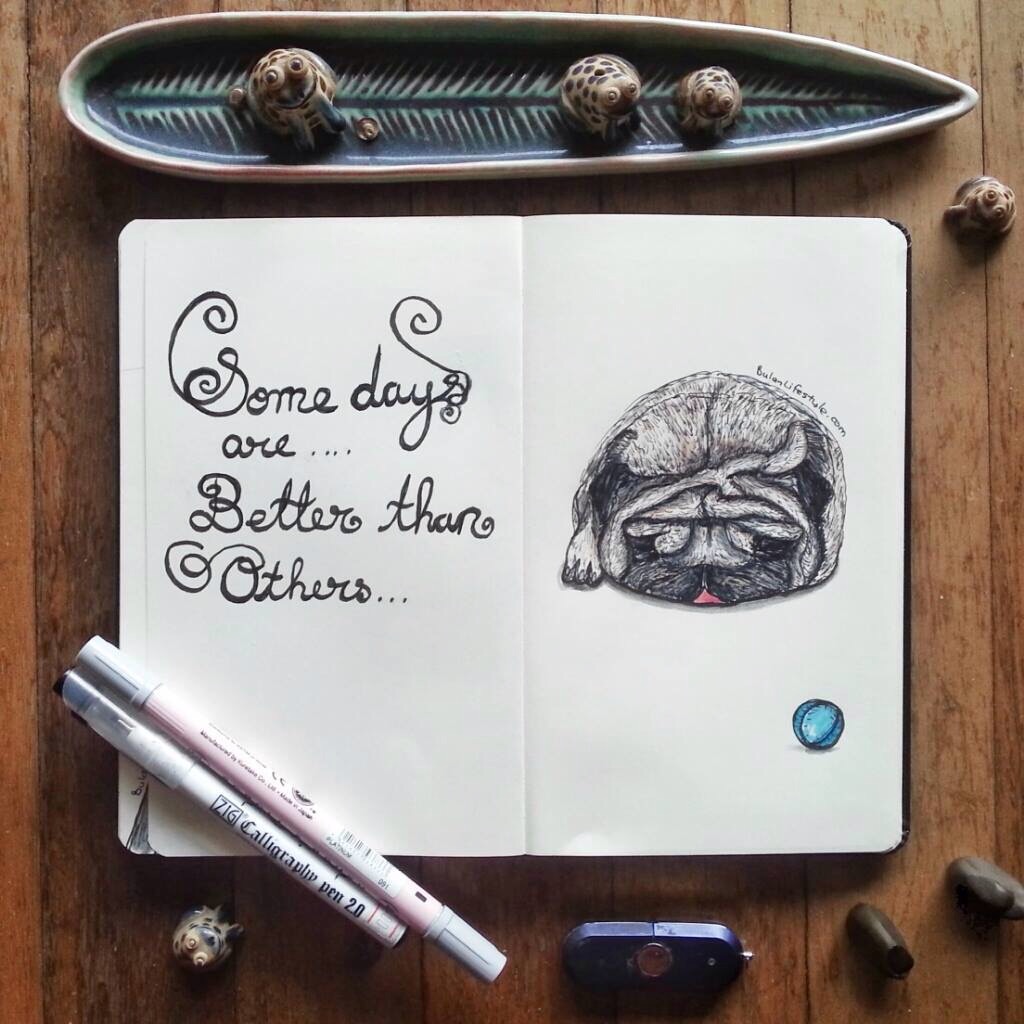 Some days
are ....
Better than
Others...
BulanLifestyle.com
Manufactured by Kuretake Co., Ltd. • Made in Japan
PLATINUM
091
ZIG® Calligraphy pen 20